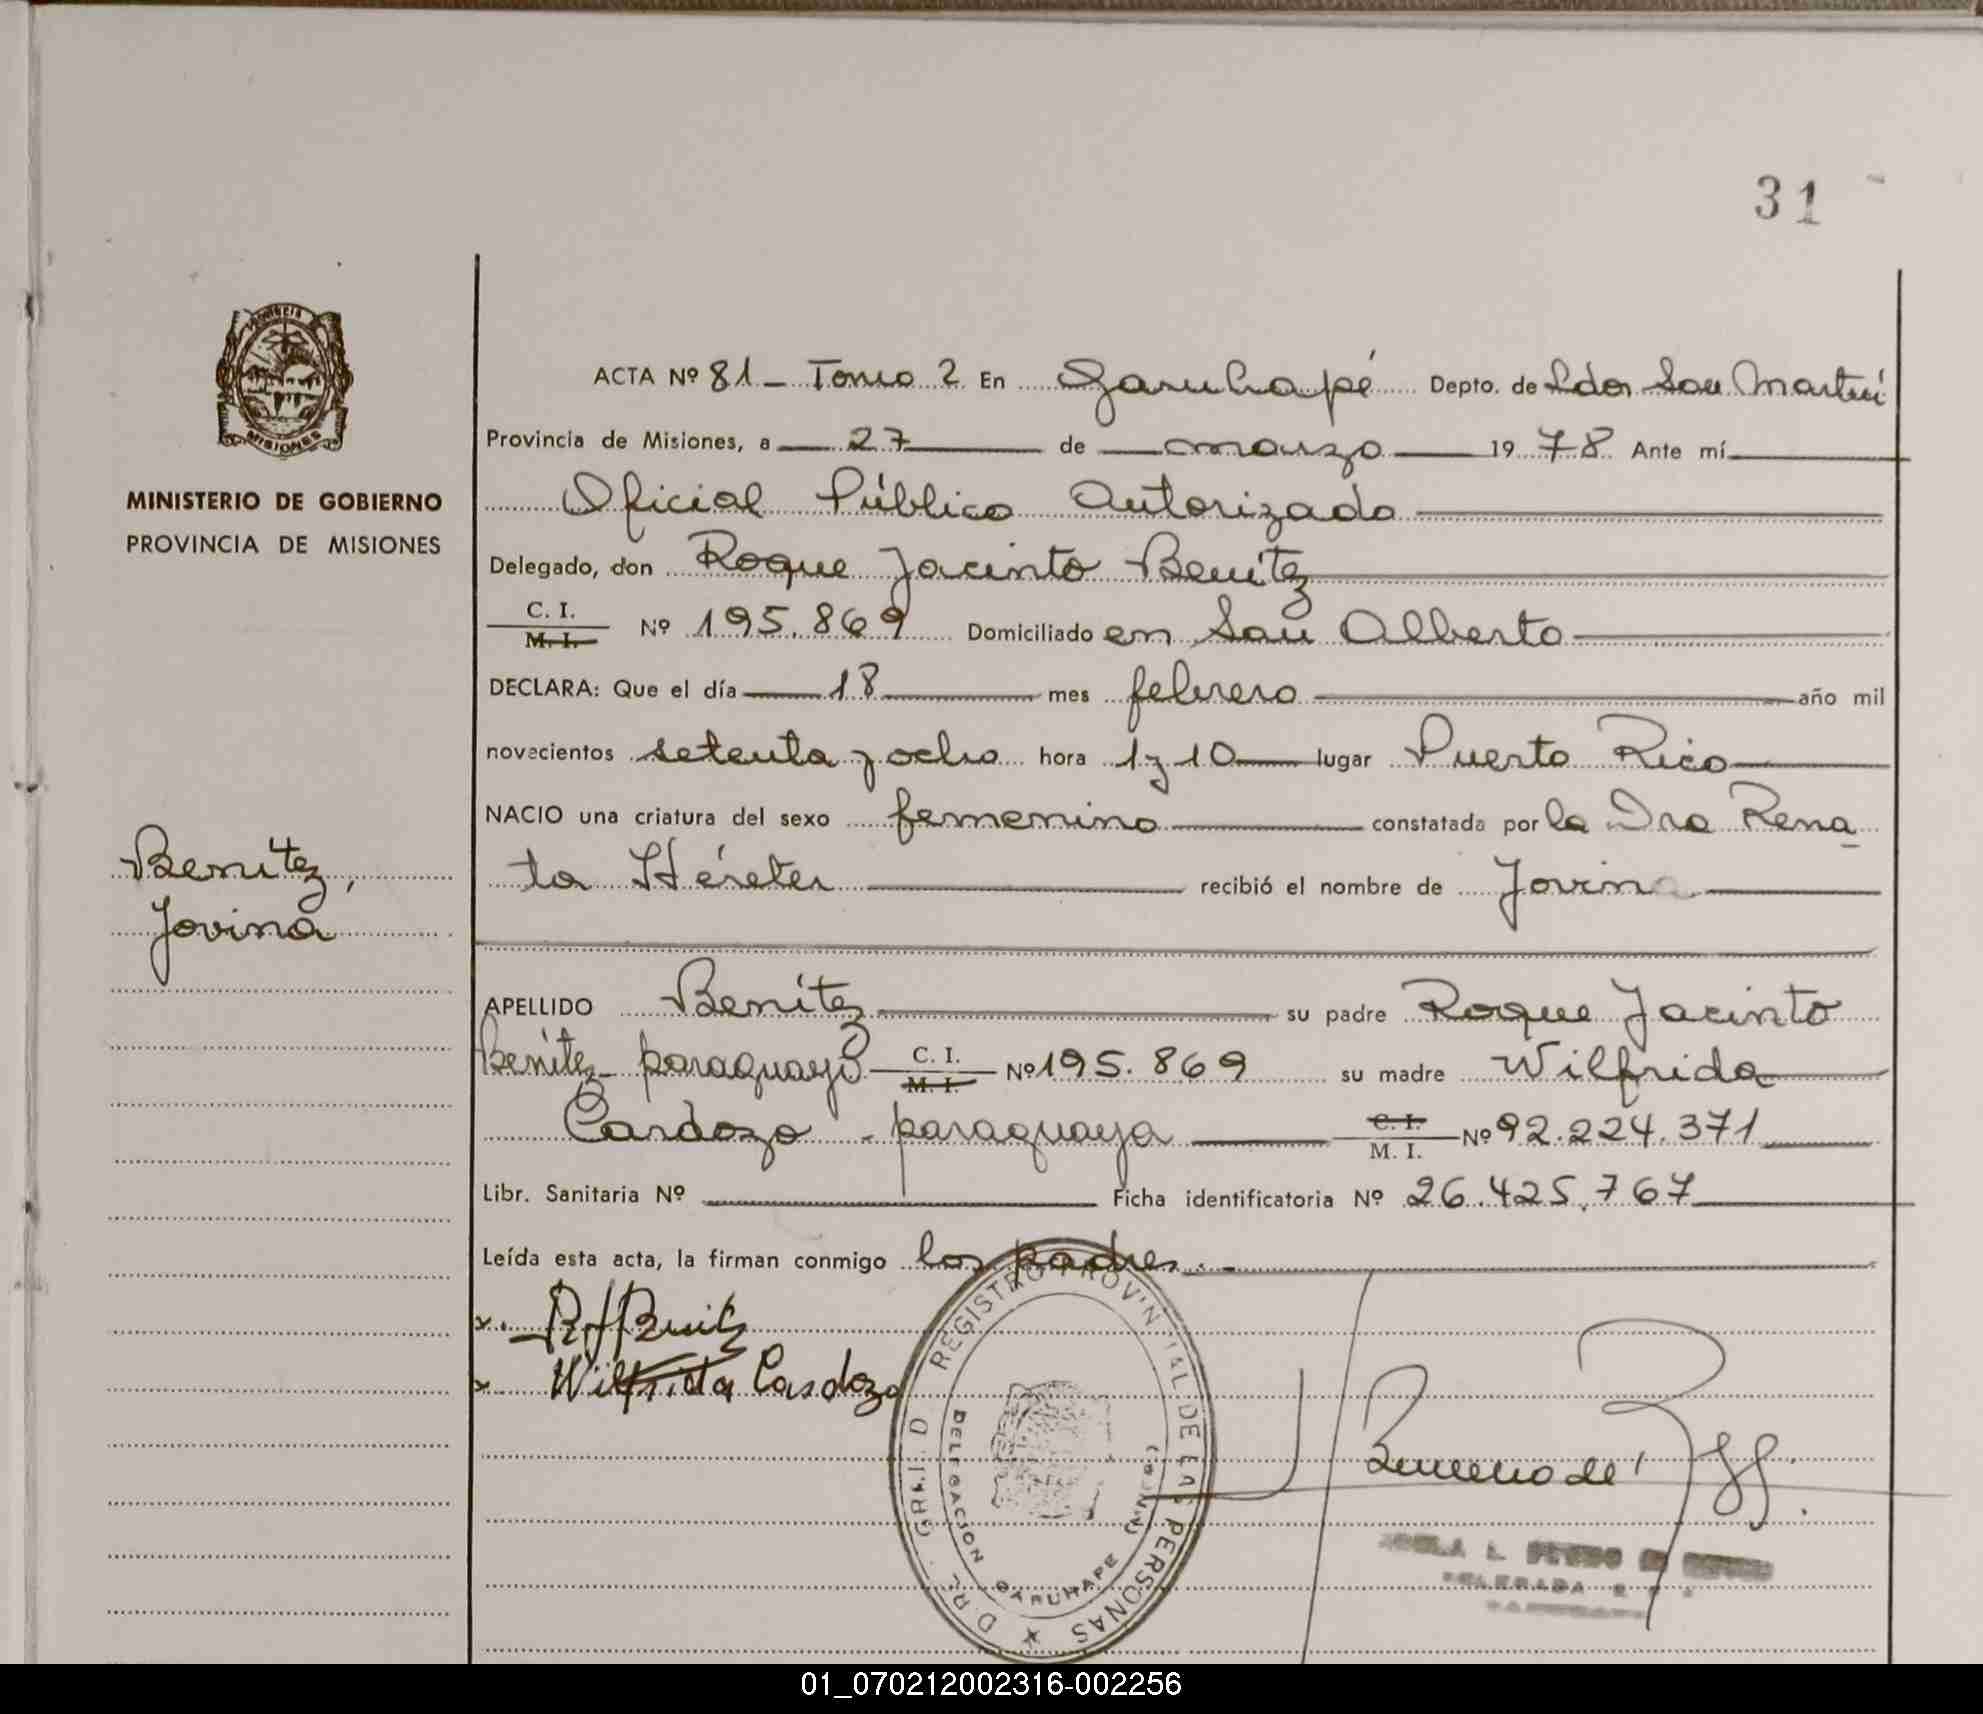 31
PROVINCIA
MISIONES
MINISTERIO DE GOBIERNO
PROVINCIA DE MISIONES
Benítez,
Jovina
ACTA Nº 81 - Tomo 2 En Garuhapé Depto. de Ldor San Martín
Provincia de Misiones, a 27 de marzo 1978 Ante mí
Oficial Público Autorizado
Delegado, don Roque Jacinto Benítez
C. I.
M. I. Nº 195.869 Domiciliado en San Alberto
DECLARA: Que el día 18 mes febrero año mil
novecientos setenta y ocho hora 1 y 10 lugar Puerto Rico
NACIO una criatura del sexo femenino constatada por la Dra Rena
ta Héreter recibió el nombre de Jovina
APELLIDO Benítez su padre Roque Jacinto
Benítez - paraguayo C. I. M. I. Nº 195.869 su madre Wilfrida
Cardozo - paraguaya C. I. M. I. Nº 92.224.371
Libr. Sanitaria Nº Ficha identificatoria Nº 26.425.767
Leída esta acta, la firman conmigo los padres.-
Wilfrida Cardozo
REGISTRO PROVINCIAL DE LAS PERSONAS
DELEGACION GARUHAPE (MNES.)
DELEGADA
01_070212002316-002256